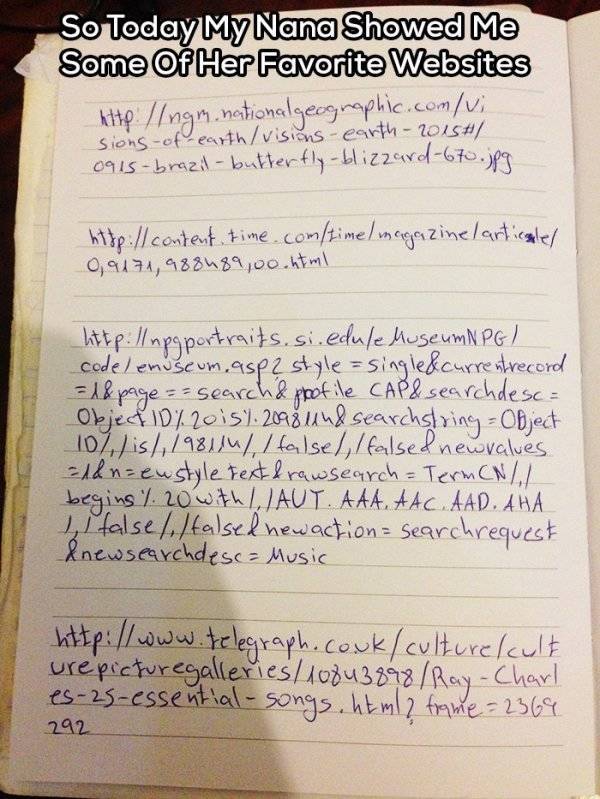 So Today My Nana Showed Me
Some Of Her Favorite Websites
http://ngm.nationalgeographic.com/vi
sions-of-earth/visions-earth-2015#/
0915-brazil-butterfly-blizzard-670.jpg
http://content.time.com/time/magazine/article/
0,9171,988489,00.html
http://npgportraits.si.edu/eMuseumNPG/
code/emuseum.asp?style=single&currentrecord
=1&page==search&profile CAP&searchdesc=
Object ID%20is%209811u&searchstring=Object
ID/,/is/,/9811u/,/false/,/false&newvalues
=1&n=ewstyle text&rawsearch=TermCN/,/
begins%20with/,/AUT.AAA.AAC.AAD.AHA
/,/false/,/false&newaction=searchrequest
&newsearchdesc=Music
http://www.telegraph.co.uk/culture/cult
urepicturegalleries/10843898/Ray-Charl
es-25-essential-songs.html?frame=2369
292